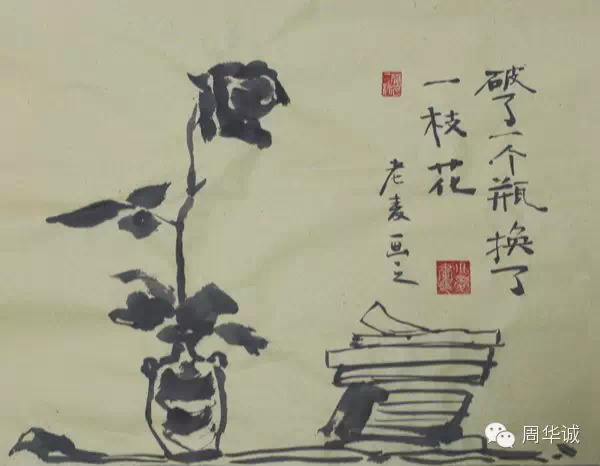 破了一个瓶换了
一枝花
老麦画之
周华诚